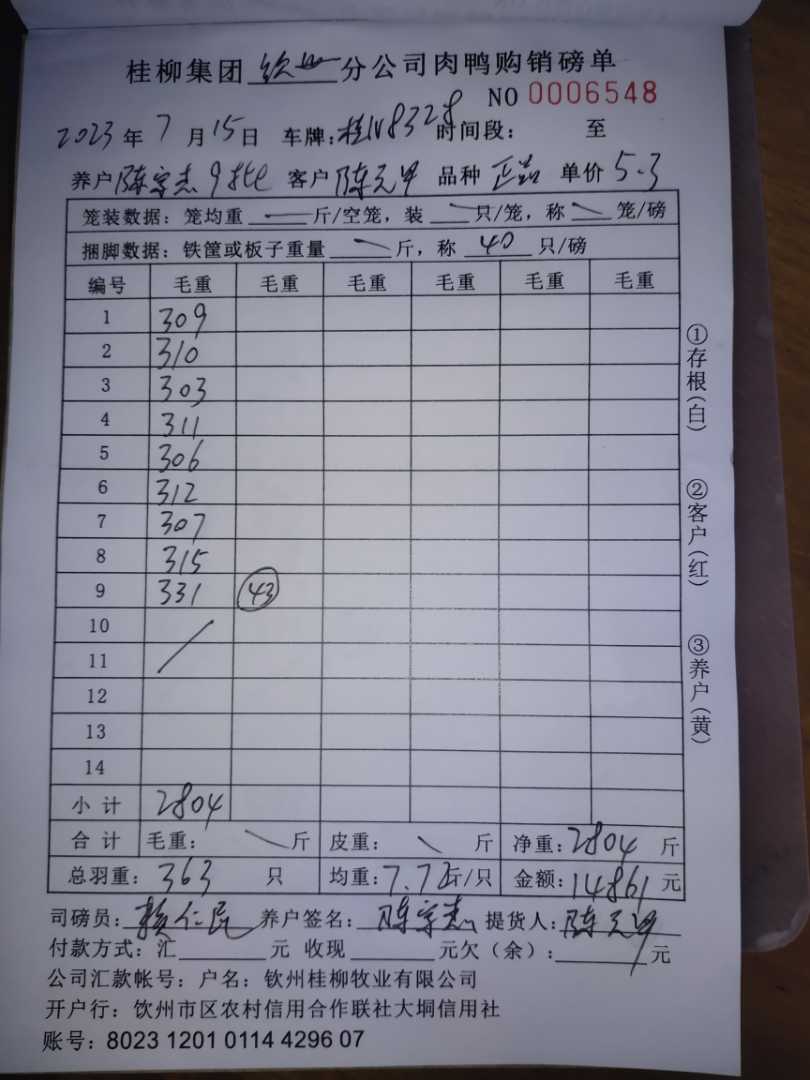 桂柳集团 钦州 分公司肉鸭购销磅单
NO 0006548
2023 年 7 月 15 日 车牌:桂N8328 时间段: 至
养户 陈宗杰 9批 客户 陈元甲 品种 正品 单价 5.3
笼装数据: 笼均重 — 斤/空笼, 装 — 只/笼, 称 — 笼/磅
捆脚数据: 铁筐或板子重量 — 斤, 称 40 只/磅
编号 毛重 毛重 毛重 毛重 毛重 毛重
1 309
2 310
3 303
4 311
5 306
6 312
7 307
8 315
9 331 43
10
11
12
13
14
小计 2804
合计 毛重: 斤 皮重: 斤 净重:2804 斤
总羽重: 363 只 均重:7.72斤/只 金额:14861 元
司磅员: 赖仁昆 养户签名: 陈宗杰 提货人:陈元甲
付款方式: 汇 元 收现 元欠(余): 元
公司汇款帐号: 户名: 钦州桂柳牧业有限公司
开户行: 饮州市区农村信用合作联社大垌信用社
账号: 8023 1201 0114 4296 07
①存根(白)
②客户(红)
③养户(黄)